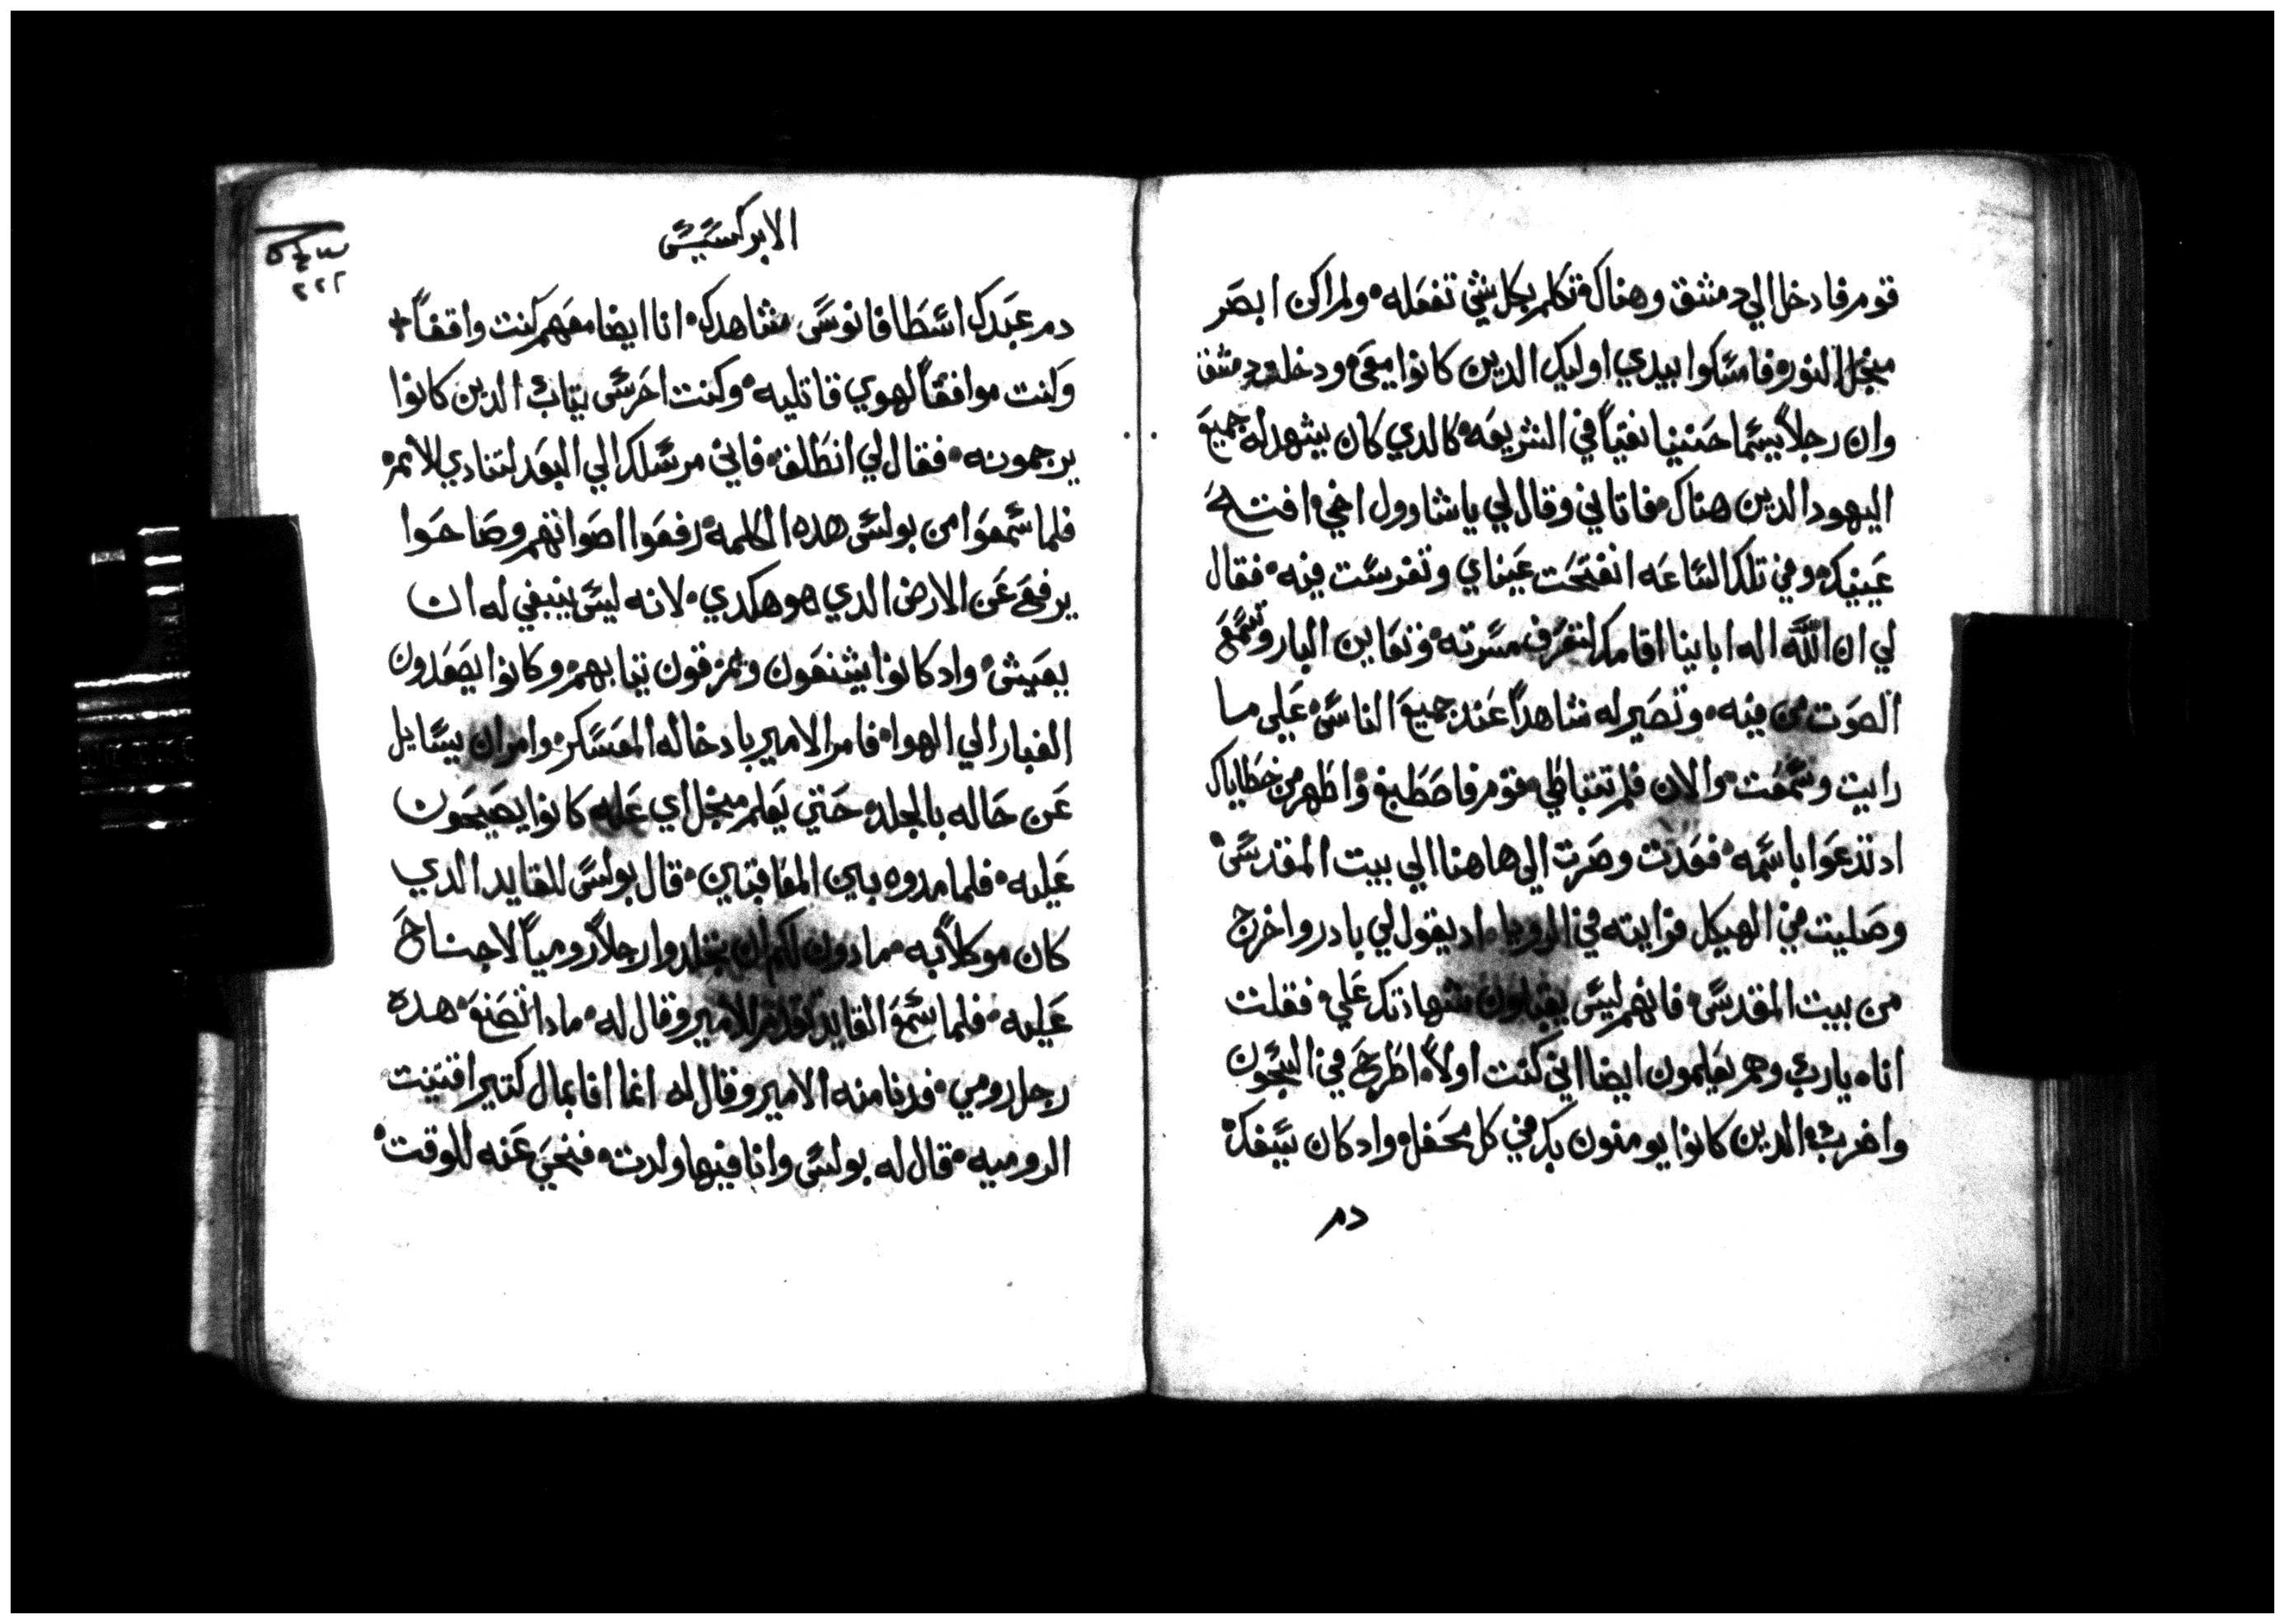 قوم فادخل الي دمشق وهناك تكلم بكل شي تفعله ولم اكن ابصر
ميجل النور فامسكوا بيدي اوليك الدين كانوا معي ودخلت دمشق
وان رجلاً يسما حننيا نقياً في الشريعه كالدي كان يشهد له جميع
اليهود الدين هناك فاتاني وقال لي يا شاوول اخي افتح
عينيك وفي تلك الساعه انفتحت عيناي وتفرست فيه فقال
لي ان الله اله ابائنا اقامك لتعرف مسرته وتعاين البار وتسمع
الصوت من فيه وتصير له شاهداً عند جميع الناس علي ما
رايت وسمعت والان فلم تتباطي قوم فاصطبغ واطهر من خطاياك
اد تدعوا باسمه فعدت وصرت الي هاهنا الي بيت المقدس
وصليت في الهيكل فرايته في الرويا اد يقول لي بادر واخرج
من بيت المقدس فانهم ليس يقبلون شهادتك علي فقلت
انا يارب وهم يعلمون ايضا اني كنت اولاً اطرح في السجون
واضرب الدين كانوا يومنون بك في كل محفل واد كان يسفك
دم
الابركسيس
دم عبدك اسطافانوس شاهدك انا ايضا معهم كنت واقفاً
وكنت موافقاً لهوي قاتليه وكنت احرس تياب الدين كانوا
يرجمونه فقال لي انطلق فاني مرسلك الي البعد لتنادي للامم
فلما سمعوا من بولس هده الكلمه رفعوا اصواتهم وصاحوا
يرفع عن الارض الدي هو هكدي لانه ليس ينبغي له ان
يعيش واد كانوا يشنعون ويمزقون تيابهم وكانوا يصعدون
الغبار الي الهوا فامر الامير بادخاله المعسكر وامر ان يسايل
عن حاله بالجلد حتي يعلم ميجل اي عله كانوا يصيحون
عليه فلما مدوه بين المعاقبين قال بولس للقايد الدي
كان موكلاً به مادون لكم ان تجلدوا رجلاً رومياً لا جناح
عليه فلما سمع القايد تقدم للامير وقال له مادا تصنع هده
رجل رومي فدنا منه الامير وقال له انما انا بمال كتير اقتنيت
الروميه قال له بولس وانا فيها ولدت فتنحي عنه للوقت